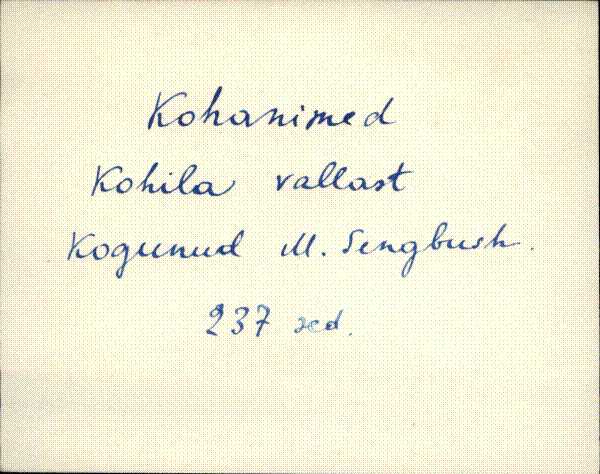 Kohanimed
Kohila vallast
Kogunud M. Sengbush.
237 sed.